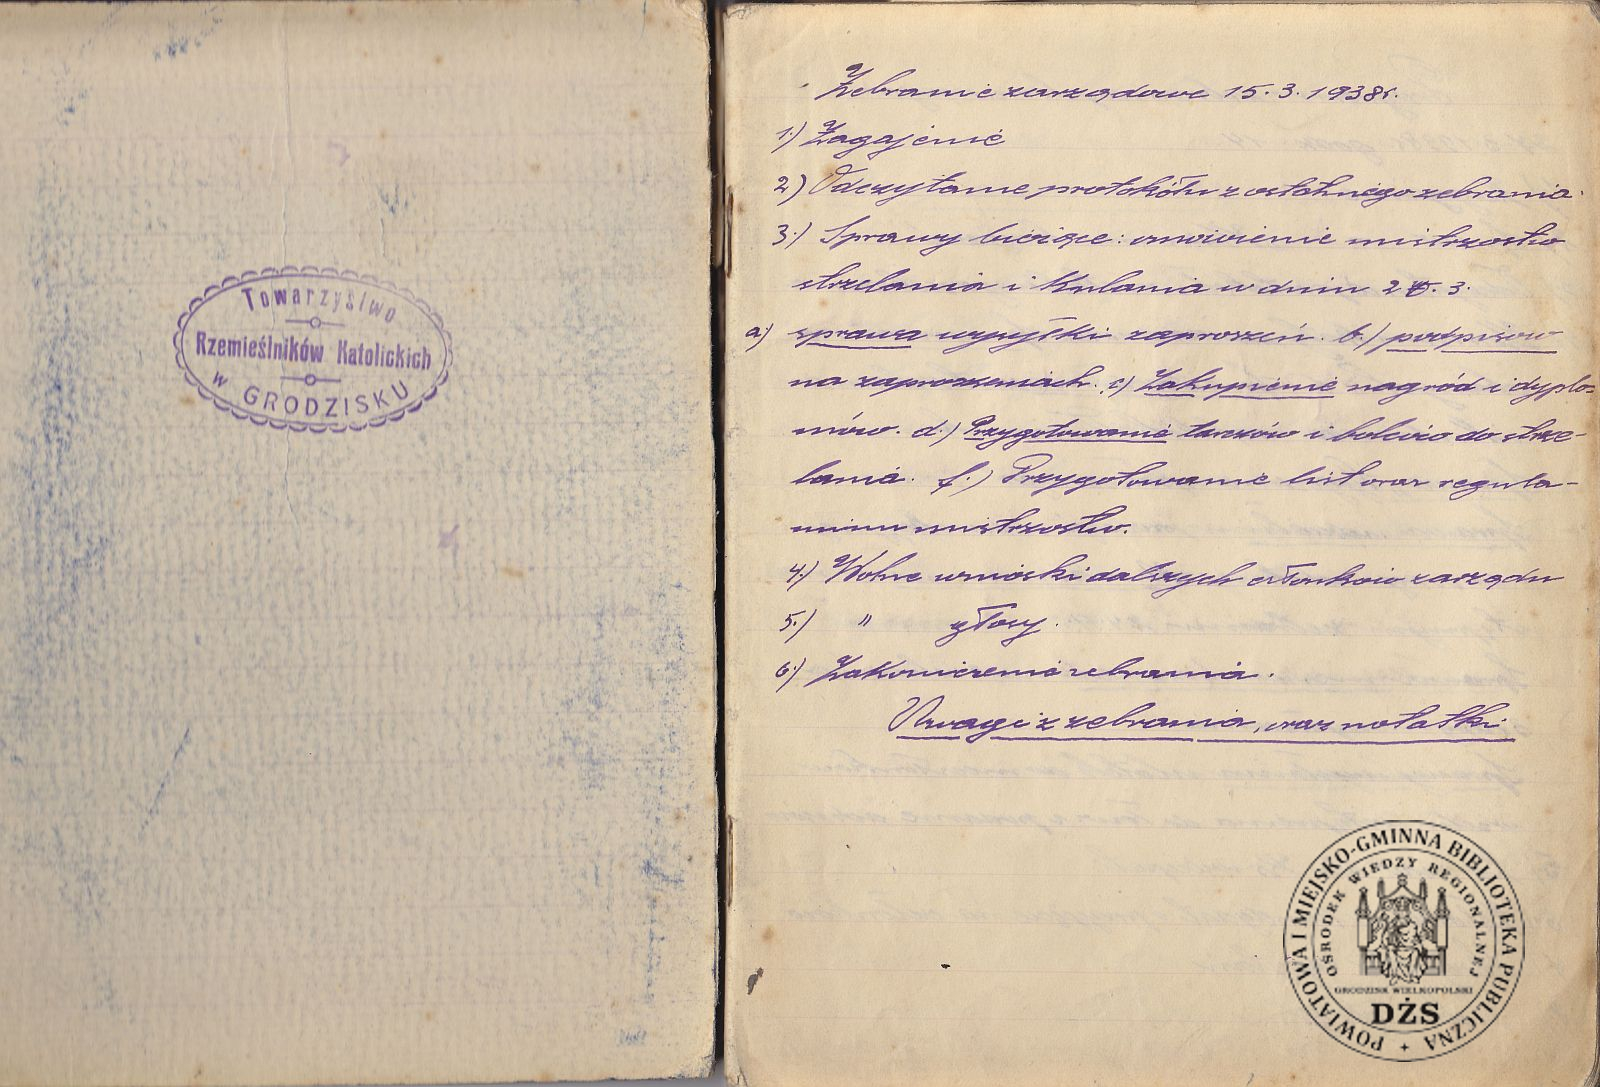 Towarzystwo
Rzemieślników Katolickich
w GRODZISKU
Zebranie zarządowe 15. 3. 1938r.
1.) Zagajenie
2) Odczytanie protokółu z ostatniego zebrania.
3.) Sprawy bieżące: omówienie mistrzostw
strzelania i Kulania w dniu 3.
a) sprawa wysyłki zaproszeń. b.) podpisów
na zaproszeniach. c) Zakupienie nagród i dyplo-
mów. d.) Przygotowanie tarczów i bolców do strze-
lania. f.) Przygotowanie list oraz regula-
minu mistrzostw.
4.) Wolne wnioski dalszych członków zarządu
5.) " głosy.
6.) Zakończenie zebrania.
Uwagi z zebrania, oraz notatki
POWIATOWA I MIEJSKO-GMINNA BIBLIOTEKA PUBLICZNA
OŚRODEK WIEDZY REGIONALNEJ
GRODZISK WIELKOPOLSKI
DŻS